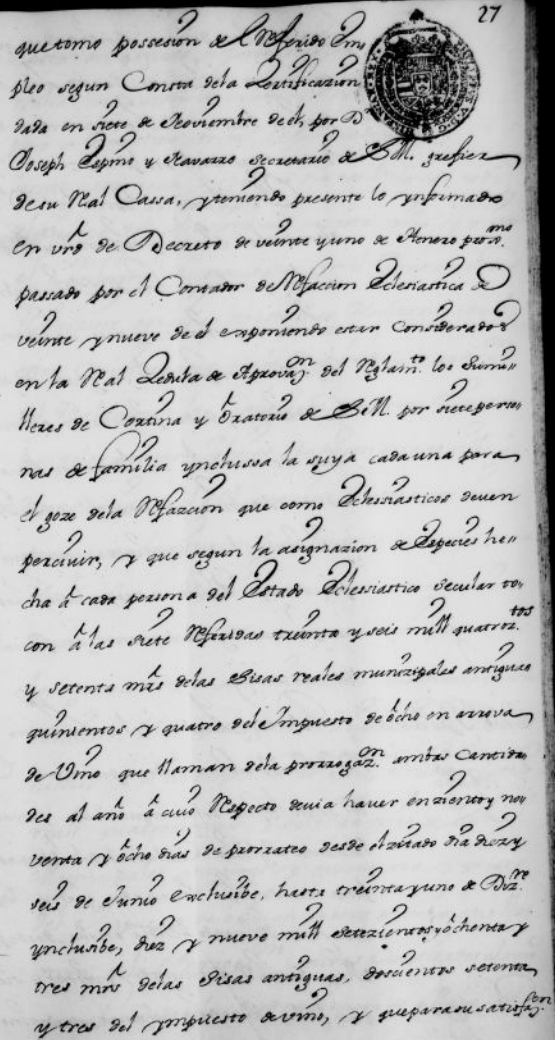 27
que tomo possesion de el Referido Em,
pleo segun Consta dela Zertificazion
dada en siete de Noviembre de el, por D
Joseph Espino y Navarro secretario de S.M. grefier
de su Real Cassa, y teniendo presente lo ynformado
en vrd de Decreto de veinte y uno de Henero proxmo
passado por el Contador de Refaccion Eclesiastica de
veinte y nueve de el exponiendo estar Considerados
en la Real Zedula de Aprovazon del Reglamto los Sumi"
lleres de Cortina y Oratorio de S.M. por siete perso"
nas de familia ynclussa la suya cada una para
el goze dela Refazcion que como Eclessiasticos deven
percivir, y que segun la asignazion de Espezies he"
cha â cada persona del Estado Eclessiastico secular to"
can â las siete Referidas treinta y seis mill quatroztos
y setenta mrs delas Sisas reales munizipales antiguas
quinientos y quatro del Impuesto de ôcho en arrova
de Vino que llaman dela prorrogazon ambas Cantida,
des al año â cuio Respecto devia haver en ziento y no"
venta y ôcho dias de prorrateo desde el zitado dia diez y
seis de Junio exclusibe, hasta treinta y uno de Dizre
ynclusibe, diez y nueve mill setezientos y ôchenta y
tres mrs delas sisas antiguas, doscientos setenta
y tres del ympuesto de vino, y que para su satisfazon